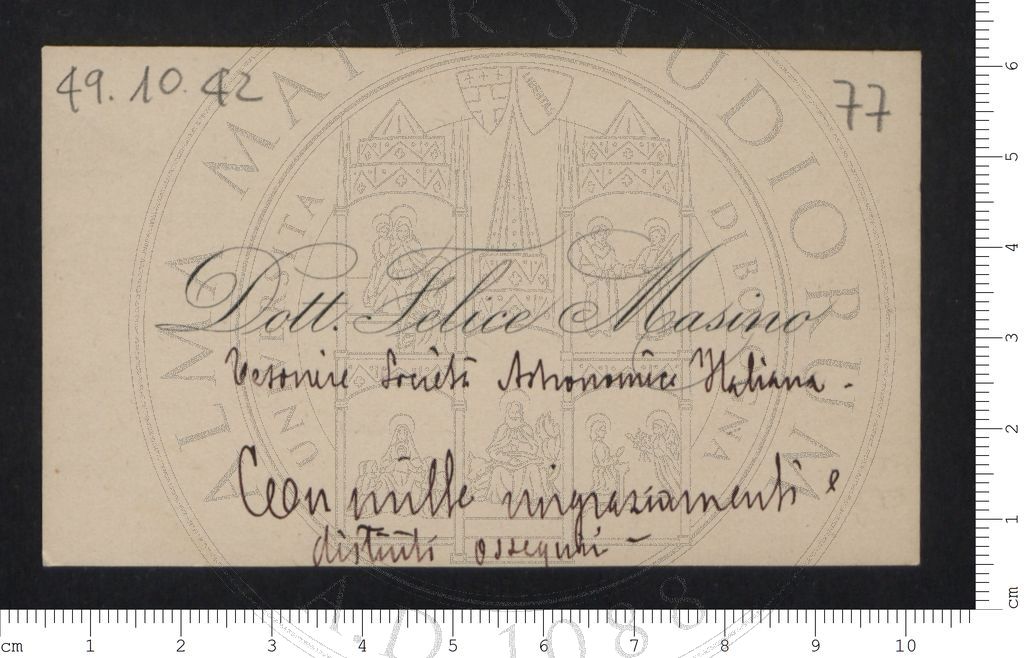 49. 10. 42
77
Dott. Felice Masino
Società Astronomica Italiana -
Con mille ringraziamenti e
distinti ossequi -
ALMA MATER STUDIORUM
UNIVERSITA DI BOLOGNA
A.D. 1088
LIBERTAS
cm 1 2 3 4 5 6 7 8 9 10
cm 1 2 3 4 5 6